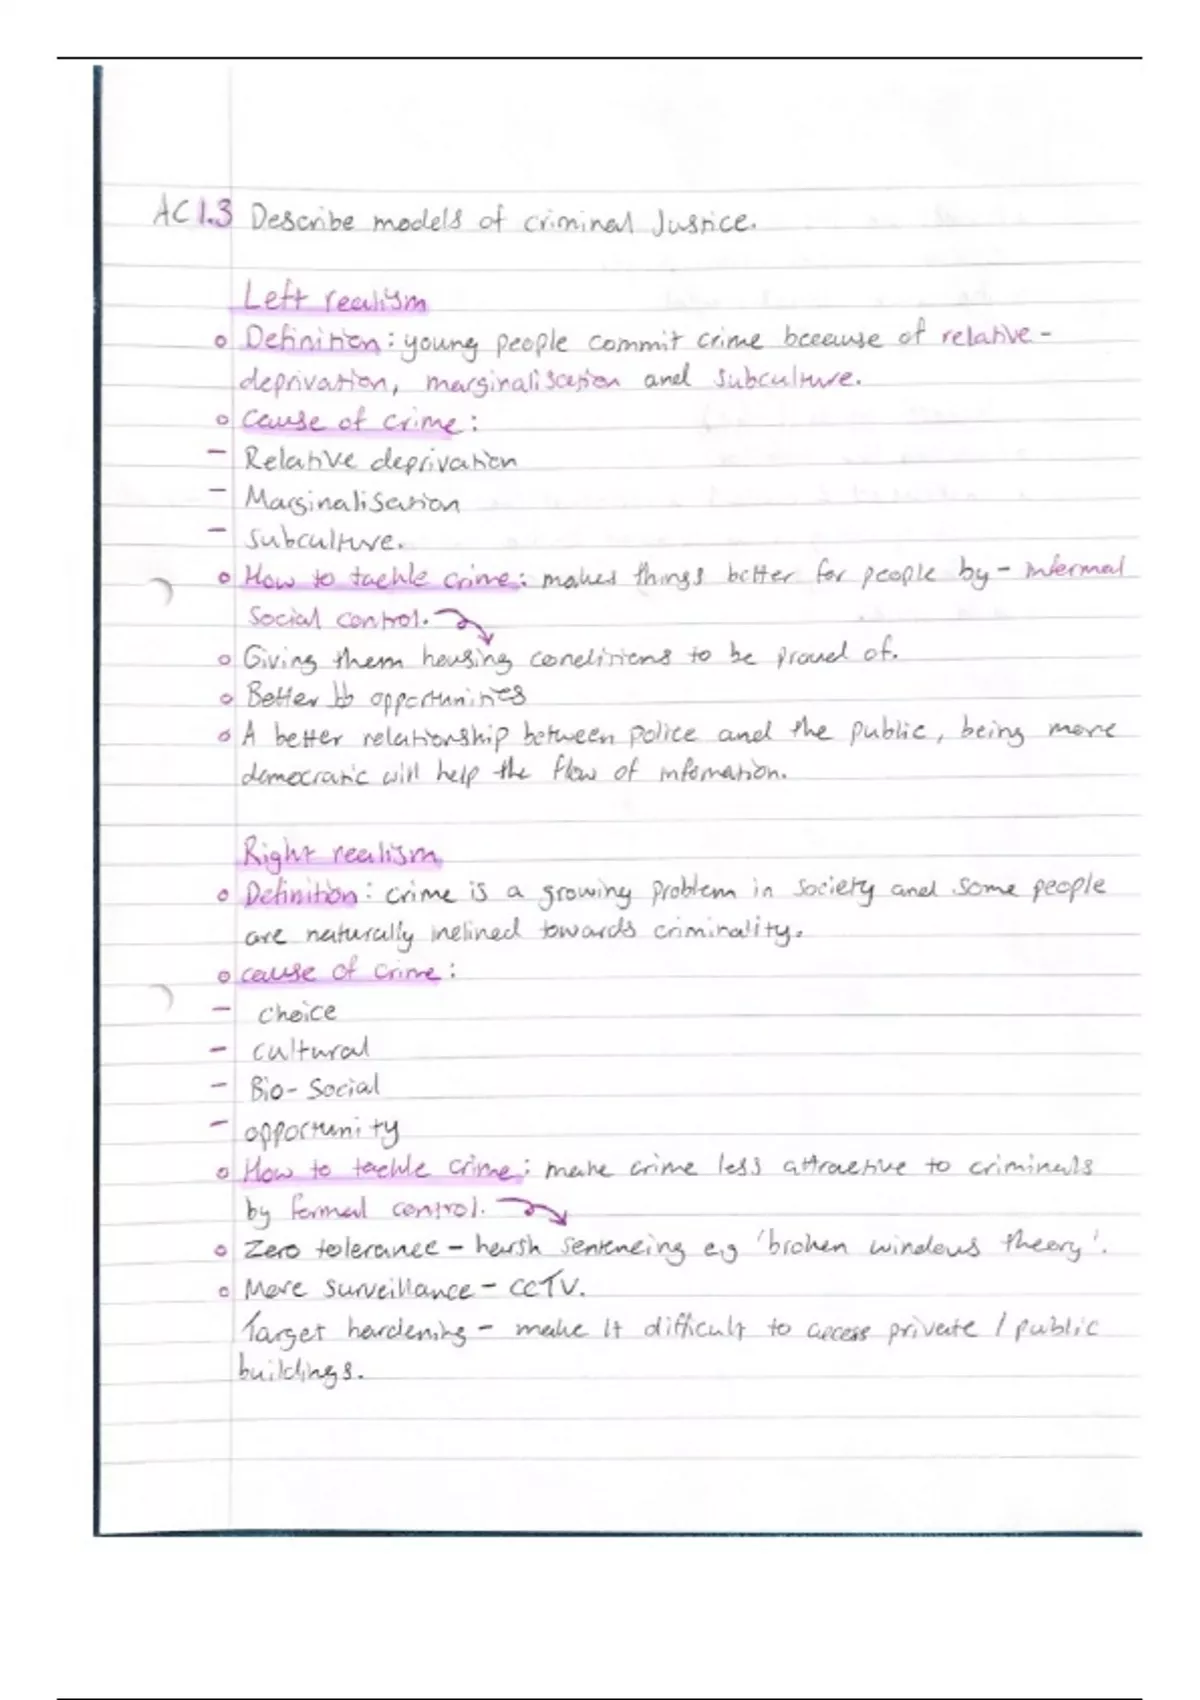 AC1.3 Describe models of criminal Justice.
Left realism
Definition: young people commit crime because of relative -
deprivation, marginalisation and subculture.
Cause of crime:
- Relative deprivation
- Marginalisation
- subculture.
How to tackle crime: makes things better for people by - informal
Social control.
Giving them housing conditions to be proud of.
Better opportunities
A better relationship between police and the public, being more
democratic will help the flow of infomation.
Right realism
Definition: crime is a growing problem in society and some people
are naturally inclined towards criminality.
cause of crime:
- choice
- cultural
- Bio-Social
- opportunity
How to tackle crime: make crime less attractive to criminals
by formal control.
Zero tolerance - harsh sentencing e.g 'broken windows theory'.
More surveillance - CCTV.
Target hardening - make it difficult to access private / public
buildings.